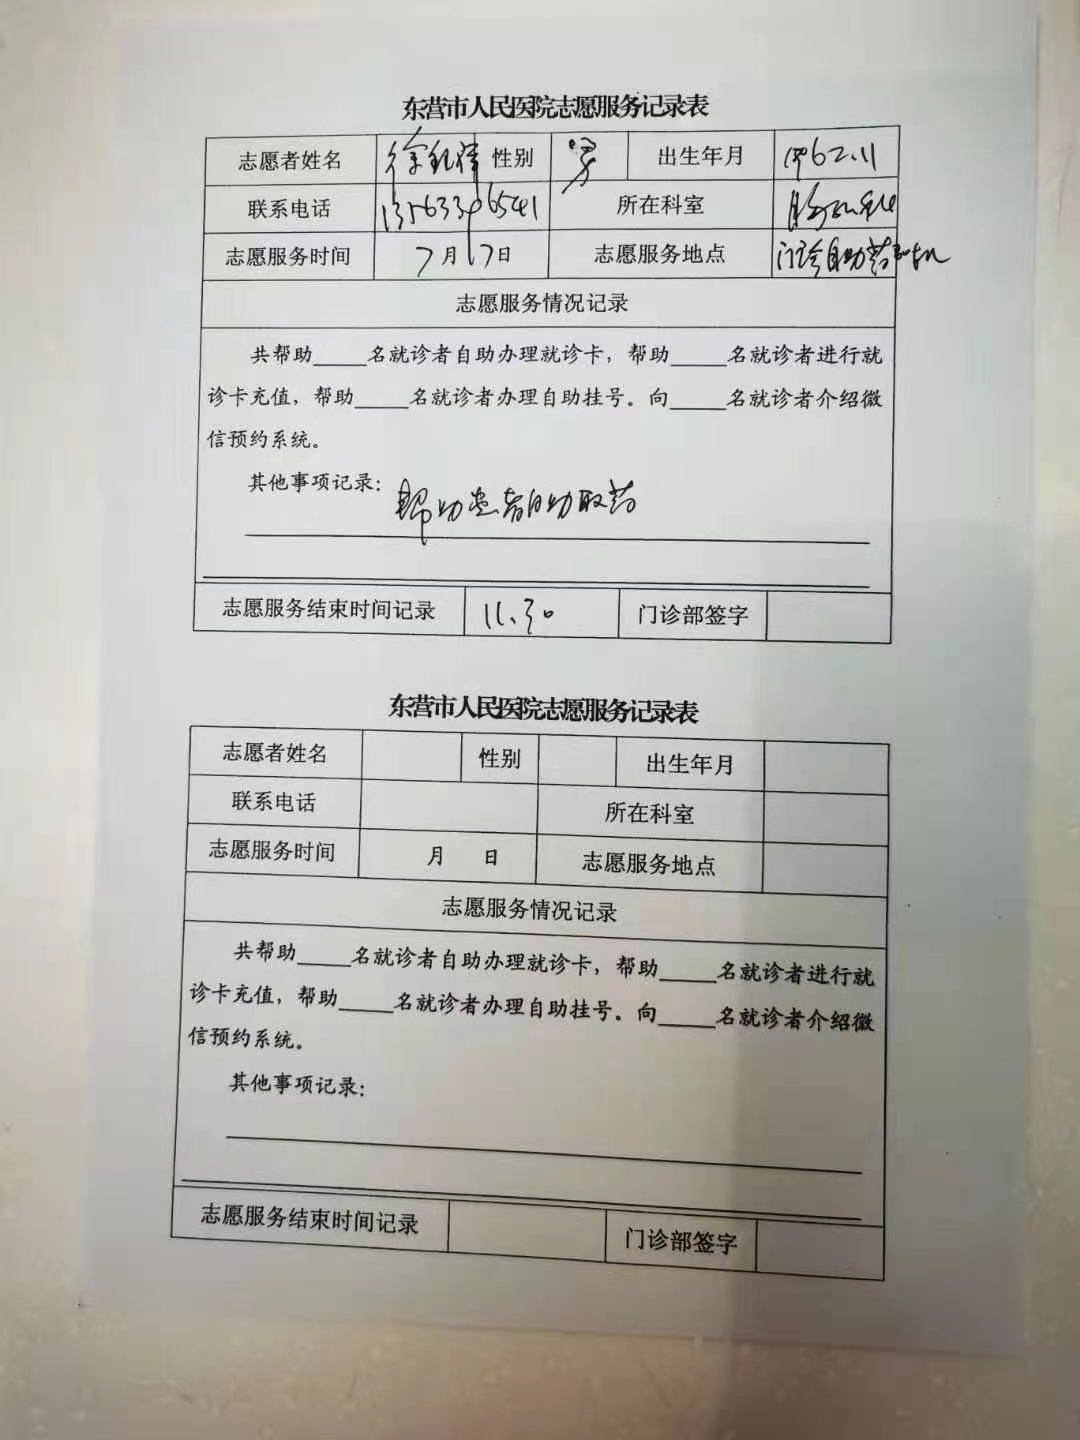 东营市人民医院志愿服务记录表
志愿者姓名 徐 性别 男 出生年月 1962.11
联系电话 所在科室
志愿服务时间 7月17日 志愿服务地点 门诊自助药
志愿服务情况记录
共帮助_____名就诊者自助办理就诊卡，帮助_____名就诊者进行就
诊卡充值，帮助_____名就诊者办理自助挂号。向_____名就诊者介绍微
信预约系统。
其他事项记录：帮助患者自助取药
志愿服务结束时间记录 11.30 门诊部签字
东营市人民医院志愿服务记录表
志愿者姓名 性别 出生年月
联系电话 所在科室
志愿服务时间 月 日 志愿服务地点
志愿服务情况记录
共帮助_____名就诊者自助办理就诊卡，帮助_____名就诊者进行就
诊卡充值，帮助_____名就诊者办理自助挂号。向_____名就诊者介绍微
信预约系统。
其他事项记录：
志愿服务结束时间记录 门诊部签字